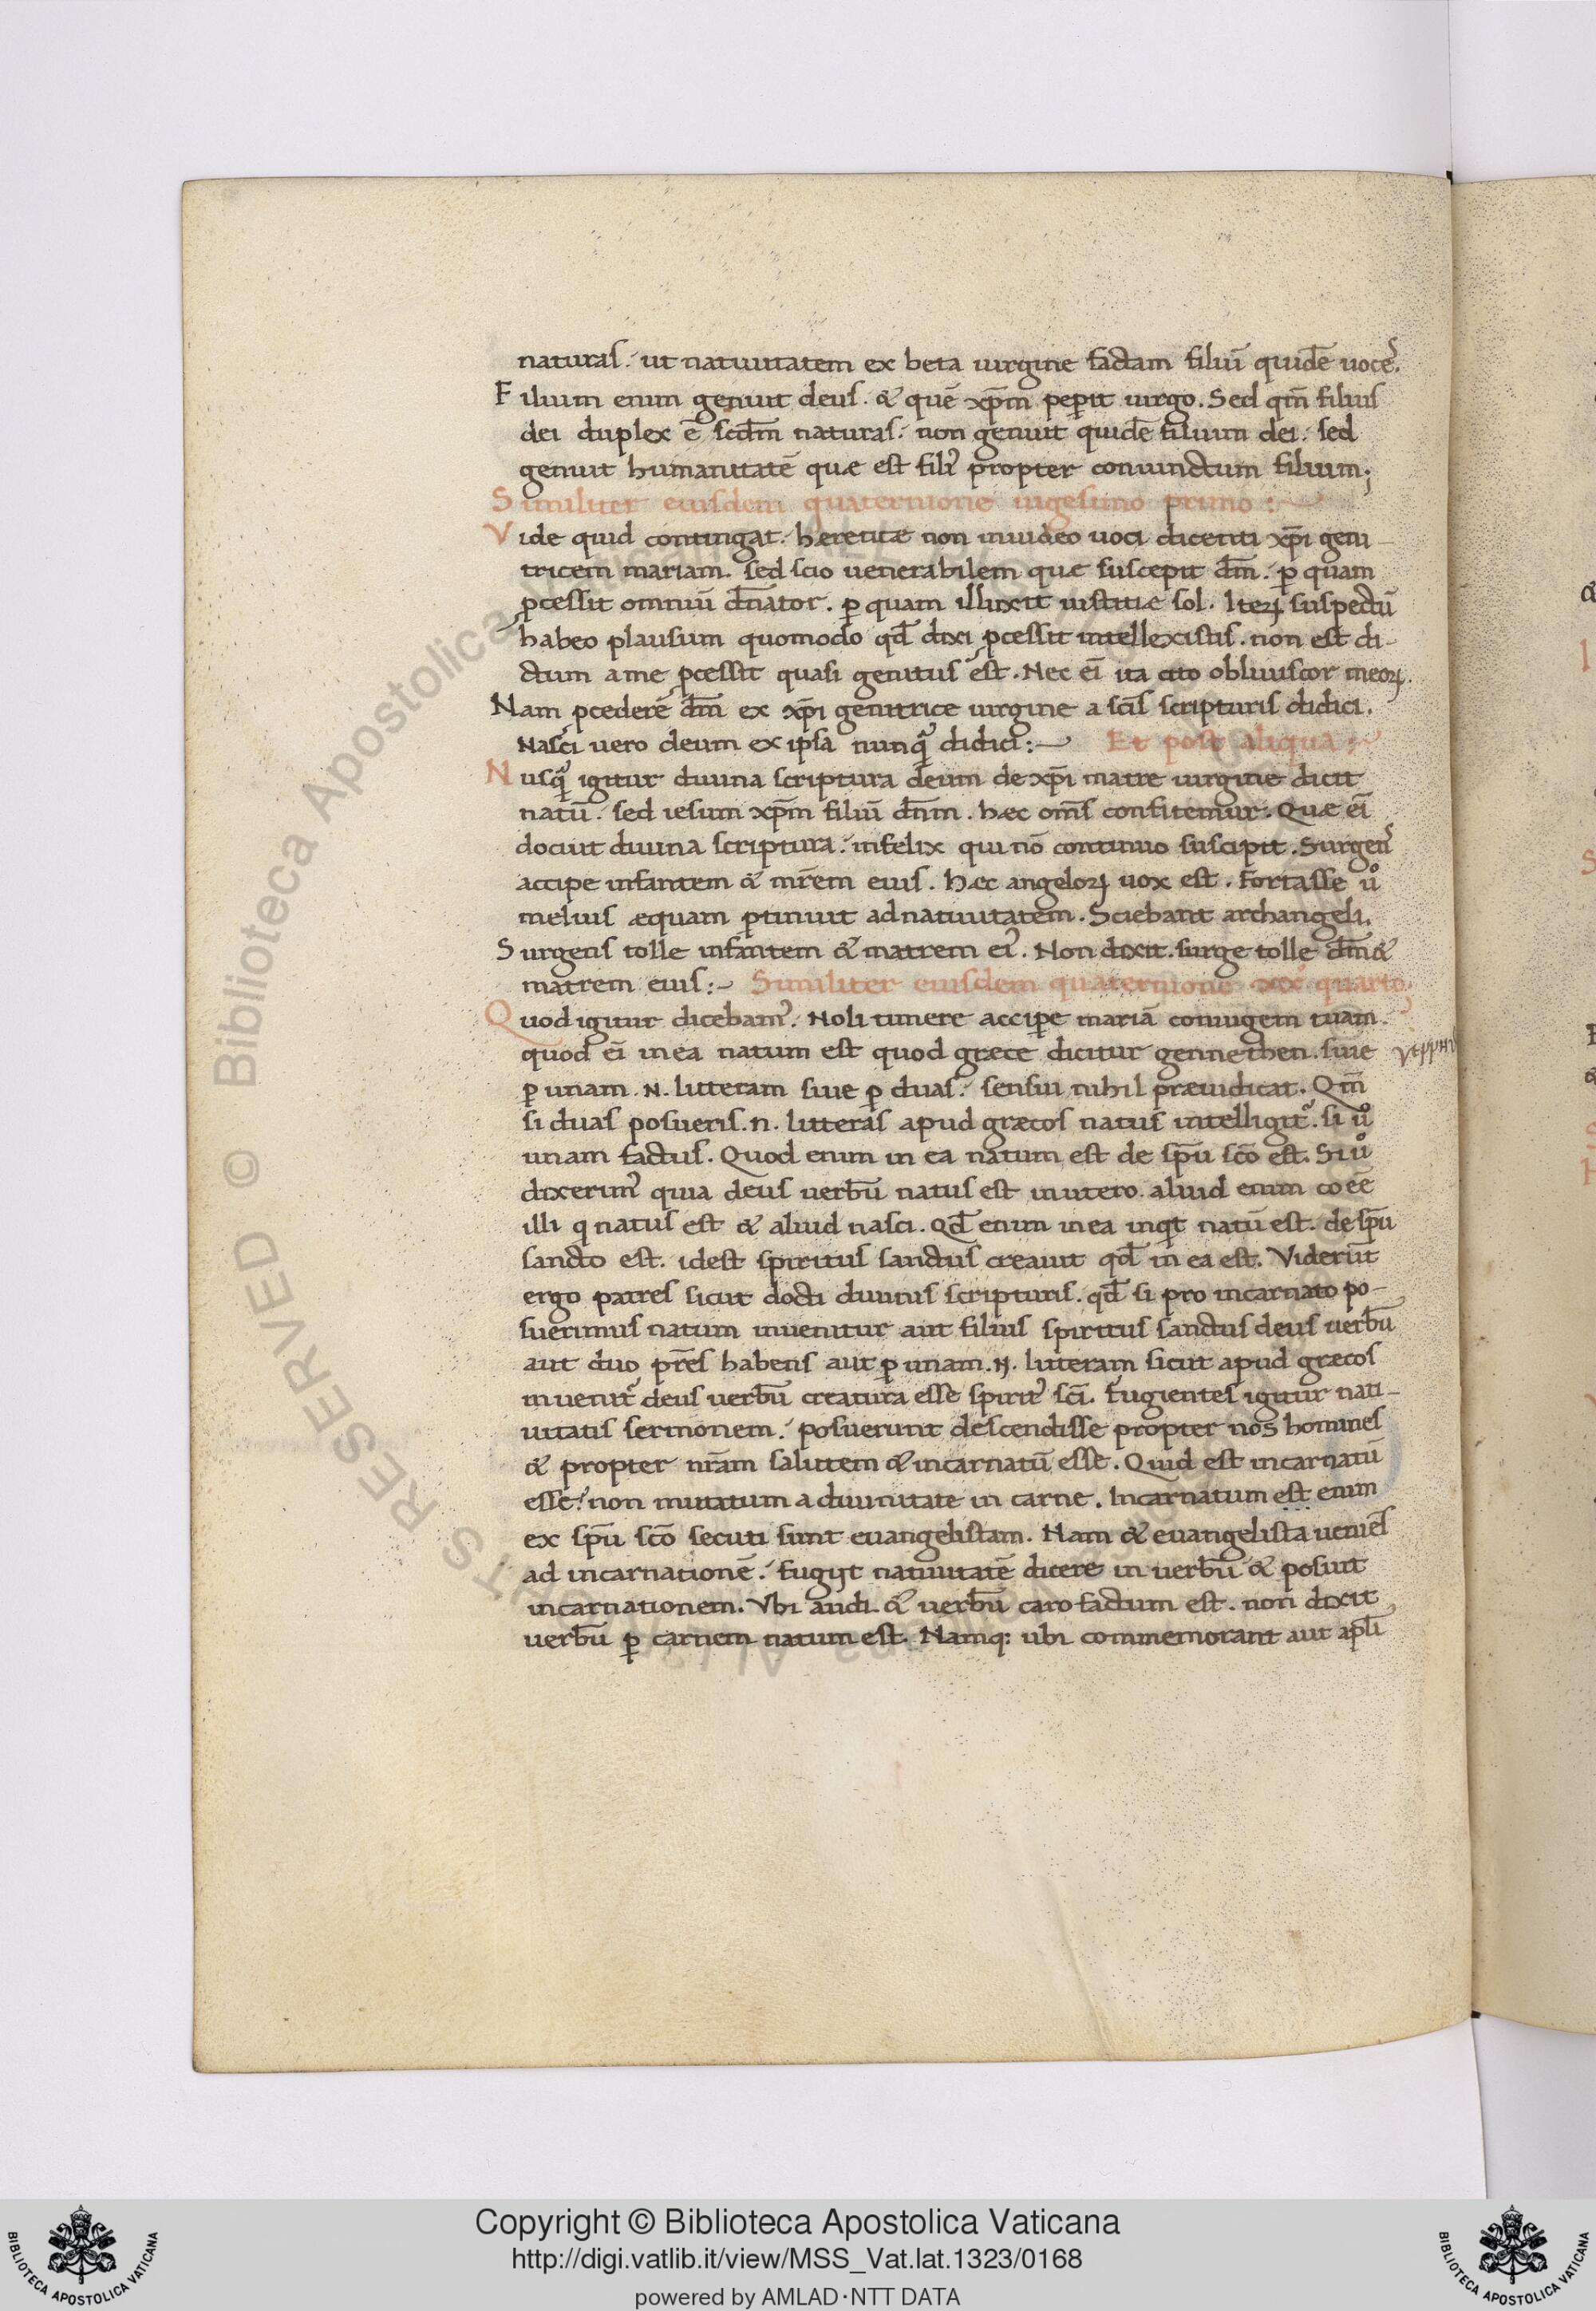 naturas. ut natiuitatem ex beta uirgine factam filiū quidē uoces̄.
Filium enim genuit deus. & quē xp̄m peperit uirgo. Sed qm̄ filius
dei duplex ē scdm̄ naturas. non genuit quidē filium dei. sed
genuit humanitatē quæ est filiꝰ propter coniunctum filium;
Similiter eiusdem quaternione uigesimo primo:
Vide quid contingat. hæreticæ non inuideo uoci dicenti xp̄i geni-
tricem mariam. sed scio uenerabilem quæ suscepit dm̄. ꝑ quam
ꝓcessit omniū dn̄ator. ꝑ quam illuxit iustitiæ sol. Iteꝝ suspectū
habeo plausum quomodo qd̄ dixi ꝓcessit intellexistis. non est di-
ctum a me ꝓcessit quasi genitus est. Nec eī ita cito obliuiscor meoꝝ.
Nam ꝓcedere dm̄ ex xp̄i genitrice uirgine a scīs scripturis didici.
Nasci uero deum ex ipsa nunqͣ didici: Et post aliqua:
Nusqͣ igitur diuina scriptura deum de xp̄i matre uirgine dicit
natū. sed iesum xp̄m filiū dn̄m. hæc om̄s confitemur. Quæ eī
docuit diuina scriptura. infelix qui nō continuo suscipit. Surgens
accipe infantem & mr̄em eius. hæc angeloꝝ uox est. Fortasse uͦ
melius æquam ꝑtinuit ad natiuitatem. Sciebant archangeli.
Surgens tolle infantem & matrem eiꝰ. Non dixit. surge tolle dm̄ &
matrem eius: Similiter eiusdem quaternione xxͦ quarto;
Quod igitur dicebamꝰ. Noli timere accipe mariā coniugem tuam.
quod eī in ea natum est quod græce dicitur gennethen. siue
ꝑ unam .N. litteram siue ꝑ duas. sensui nihil præiudicat. Qm̄
si duas posueris .n. litteras apud græcos natus intelligit᷑. si uͦ
unam factus. Quod enim in ea natum est de sp̄u scō est. Si uͦ
dixerimꝰ quia deus uerbū natus est in utero. aliud enim coēe
illi q natus est & aliud nasci. Qd̄ enim in ea inqͥt natū est. de sp̄u
sancto est. idest spiritus sanctus creauit qd̄ in ea est. Viderūt
ergo patres sicut docti diuinis scripturis. qd̄ si pro incarnato po-
suerimus natum inuenitur aut filius spiritus sanctus deus uerbū
aut duo pr̄es habens aut ꝑ unam .N. litteram sicut apud græcos
inuenit᷑ deus uerbū creatura esse spiritꝰ scī. Fugientes igitur nati-
uitatis sermonem. posuerunt descendisse propter nos homines
& propter nr̄am salutem & incarnatū esse. Quid est incarnatū
esse? non mutatum a diuinitate in carne. Incarnatum est enim
ex sp̄u scō secuti sunt euangelistam. Nam & euangelista ueniēs
ad incarnationē. fugijt natiuitatē dicere in uerbū & posuit
incarnationem. Vbi audi. & uerbū caro factum est. non dixit
uerbū ꝑ carnem natum est. Namq: ubi commemorant aut apl̄i
Copyright © Biblioteca Apostolica Vaticana
http://digi.vatlib.it/view/MSS_Vat.lat.1323/0168
powered by AMLAD·NTT DATA
BIBLIOTECA APOSTOLICA VATICANA
BIBLIOTECA APOSTOLICA VATICANA